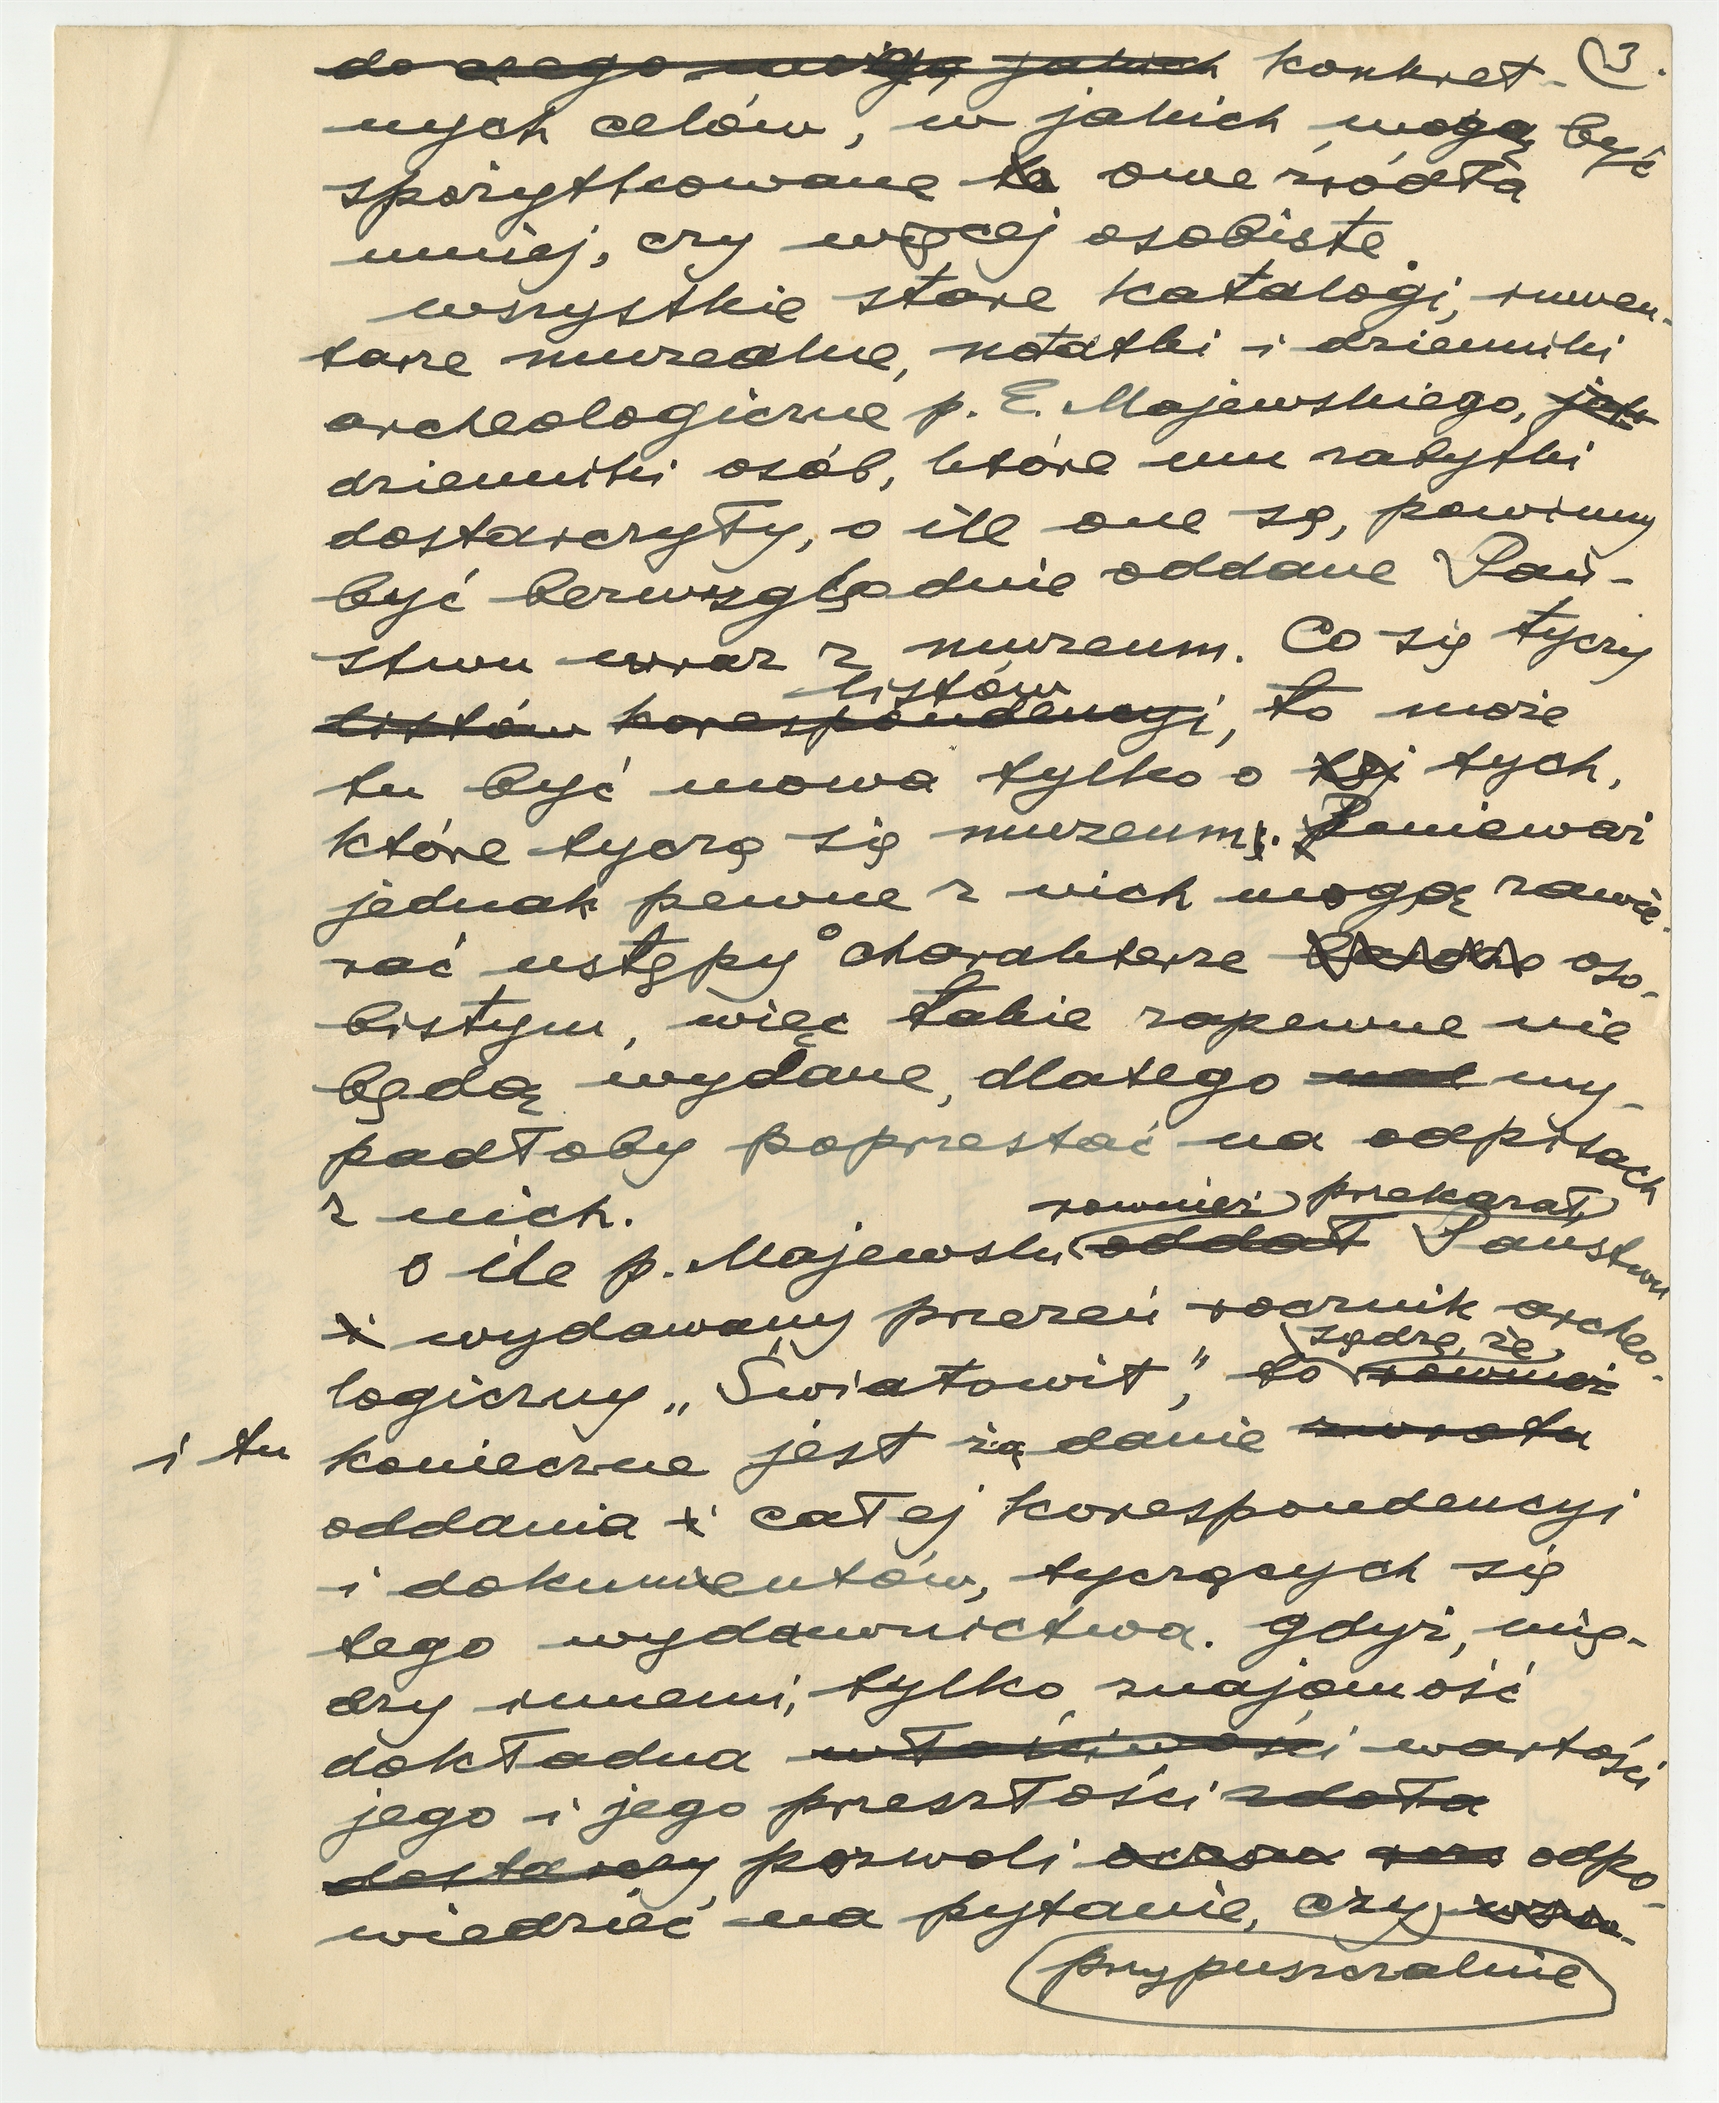 3.
do czego mogą jakich konkret-
nych celów, w jakich mogą być
spożytkowane te owe źródła
mniej, czy więcej osobiste.
wszystkie stare katalogi, inwen-
tarze muzealne, notatki i dzienniki
archeologiczne p. E. Majewskiego, jak
dzienniki osób, które mu zabytki
dostarczyły, o ile one są, powinny
być bezwzględnie oddane Pań-
stwu wraz z muzeum. Co się tyczy
listów
listów korespondencyi, to może
tu być mowa tylko o tej tych,
które tyczą się muzeum. Ponieważ
jednak pewne z nich mogą zawie-
rać ustępy o charakterze bardzo oso-
bistym, więc takie zapewne nie
będą wydane, dlatego wy-
padłoby poprzestać na odpisach
z nich.
rownież przekazał
o ile p. Majewski oddał Państwu
i wydawany przezeń rocznik archeo-
sądzę, że
logiczny „Światowit”, to rownież
i tu konieczne jest żądanie zwrotu
oddania i całej korespondencyi
i dokumentów, tyczących się
tego wydawnictwa. gdyż, mię-
dzy innemi, tylko znajomość
dokładna właściwości wartości
jego i jego przeszłości zdoła
dostarczy pozwoli odpo-
wiedzieć na pytanie, czy
przypuszczalnie